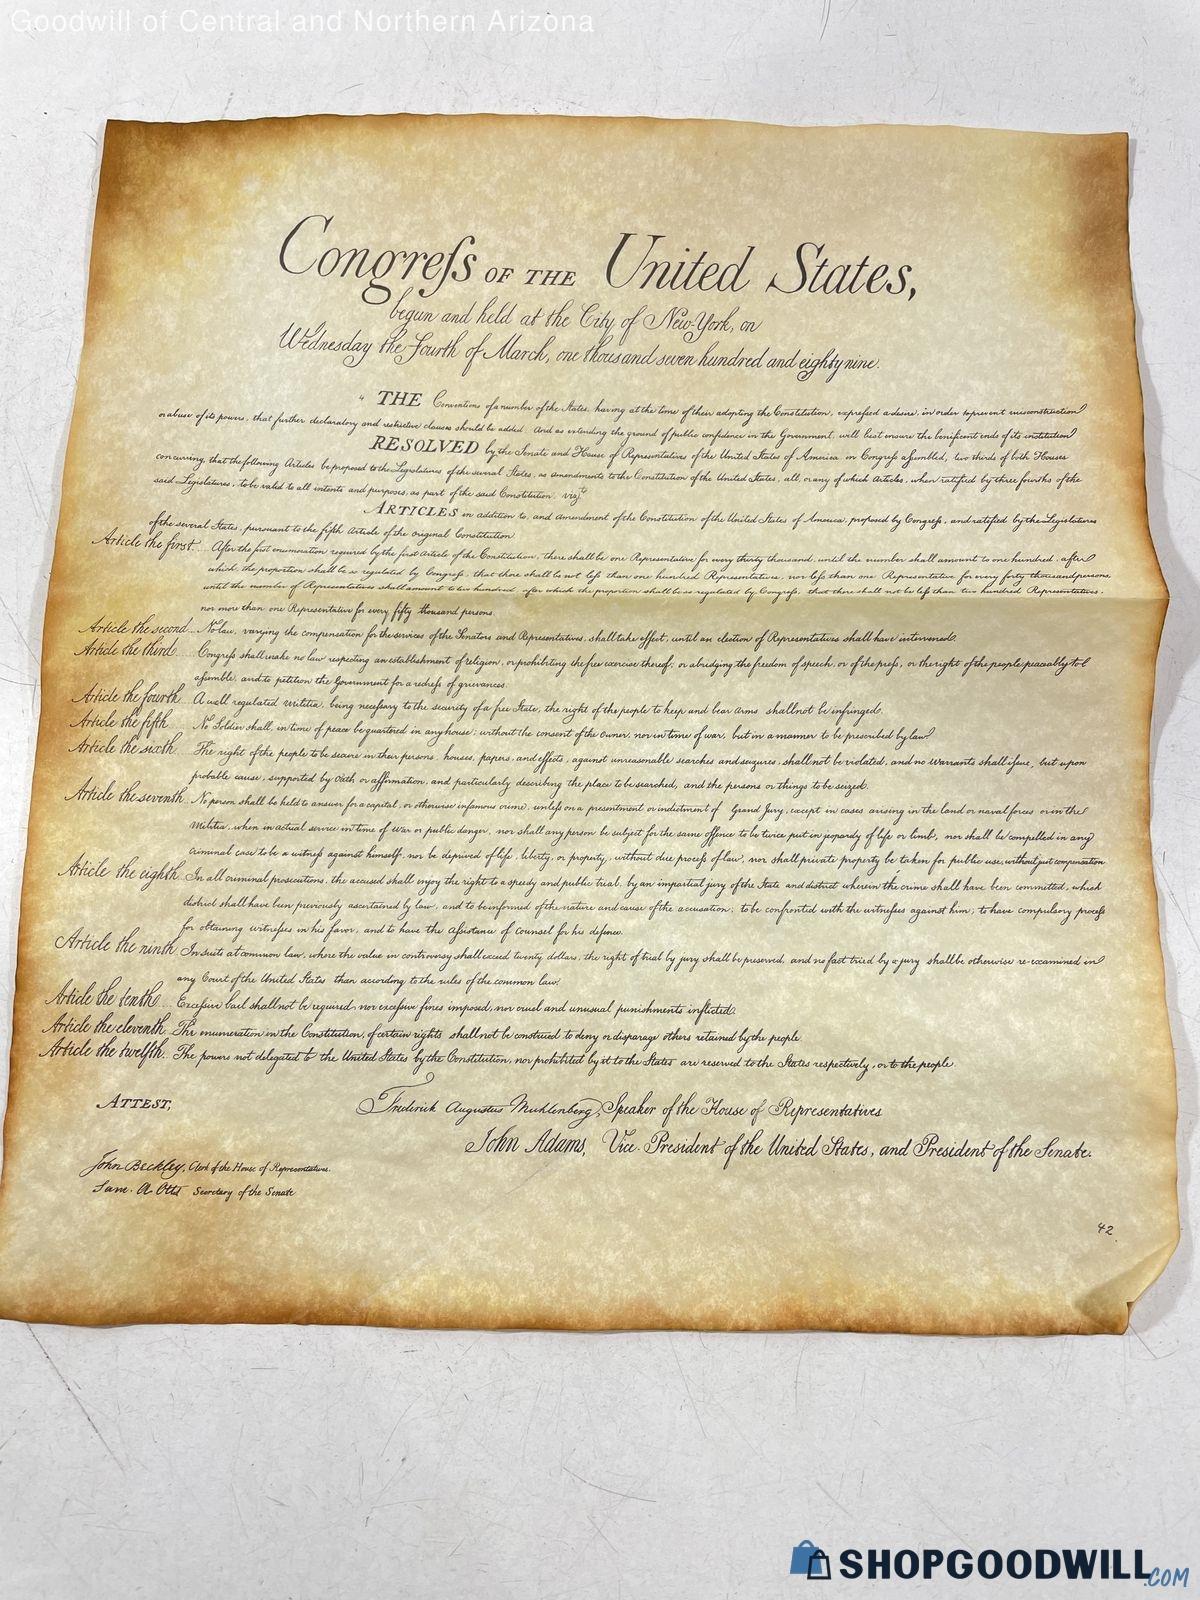 Goodwill of Central and Northern Arizona
Congreſs OF THE United States,
begun and held at the City of New-York, on
Wednesday the Fourth of March, one thousand seven hundred and eighty nine.
THE Conventions of a number of the States, having at the time of their adopting the Constitution, expreſsed a desire, in order to prevent misconstruction
or abuse of its powers, that further declaratory and restrictive clauses should be added: And as extending the ground of public confidence in the Government, will best ensure the beneficent ends of its institution
RESOLVED by the Senate and House of Representatives of the United States of America in Congreſs aſsembled, two thirds of both Houses
concurring, that the following Articles be proposed to the Legislatures of the several States, as amendments to the Constitution of the United States, all, or any of which Articles, when ratified by three fourths of the
said Legislatures, to be valid to all intents and purposes, as part of the said Constitution. vizt
ARTICLES in addition to, and amendment of the Constitution of the United States of America, proposed by Congreſs, and ratified by the Legislatures
of the several States, pursuant to the fifth Article of the original Constitution.
Article the first... After the first enumeration required by the first Article of the Constitution, there shall be one Representative for every thirty thousand, until the number shall amount to one hundred, after
which, the proportion shall be so regulated by Congreſs, that there shall be not leſs than one hundred Representatives, nor leſs than one Representative for every forty thousand persons,
until the number of Representatives shall amount to two hundred, after which the proportion shall be so regulated by Congreſs, that there shall not be leſs than two hundred Representatives,
nor more than one Representative for every fifty thousand persons.
Article the second... No law, varying the compensation for the services of the Senators and Representatives, shall take effect, until an election of Representatives shall have intervened.
Article the third... Congreſs shall make no law respecting an establishment of religion, or prohibiting the free exercise thereof, or abridging the freedom of speech, or of the preſs, or the right of the people peaceably to
aſsemble, and to petition the Government for a redreſs of grievances.
Article the fourth.. A well regulated militia, being neceſsary to the security of a free State, the right of the people to keep and bear arms shall not be infringed.
Article the fifth... No Soldier shall, in time of peace be quartered in any house, without the consent of the owner, nor in time of war, but in a manner to be prescribed by law.
Article the sixth... The right of the people to be secure in their persons, houses, papers, and effects, against unreasonable searches and seizures, shall not be violated, and no warrants shall iſsue, but upon
probable cause, supported by oath or affirmation, and particularly describing the place to be searched, and the persons or things to be seized.
Article the seventh. No person shall be held to answer for a capital, or otherwise infamous crime, unleſs on a presentment or indictment of Grand Jury, except in cases arising in the land or naval forces or in the
Militia, when in actual service in time of war or public danger, nor shall any person be subject for the same offence to be twice put in jeopardy of life or limb, nor shall be compelled in any
criminal case to be a witneſs against himself, nor be deprived of life, liberty, or property, without due proceſs of law; nor shall private property be taken for public use, without just compensation
Article the eighth. In all criminal prosecutions, the accused shall enjoy the right to a speedy and public trial, by an impartial jury of the State and district wherein the crime shall have been committed, which
district shall have been previously ascertained by law, and to be informed of the nature and cause of the accusation; to be confronted with the witneſses against him; to have compulsory proceſs
for obtaining witneſses in his favor, and to have the Aſsistance of counsel for his defence.
Article the ninth. In suits at common law, where the value in controversy shall exceed twenty dollars, the right of trial by jury shall be preserved, and no fact tried by a jury shall be otherwise re-examined in
any Court of the United States than according to the rules of the common law.
Article the tenth... Exceſsive bail shall not be required, nor exceſsive fines imposed, nor cruel and unusual punishments inflicted.
Article the eleventh. The enumeration in the Constitution, of certain rights shall not be construed to deny or disparage others retained by the people.
Article the twelfth. The powers not delegated to the United States by the Constitution, nor prohibited by it to the States are reserved to the States respectively, or to the people
ATTEST,
Frederick Augustus Muhlenberg, Speaker of the House of Representatives
John Adams, Vice-President of the United States, and President of the Senate.
John Beckley, Clerk of the House of Representatives.
Sam. A. Otis Secretary of the Senate
42
SHOPGOODWILL.COM